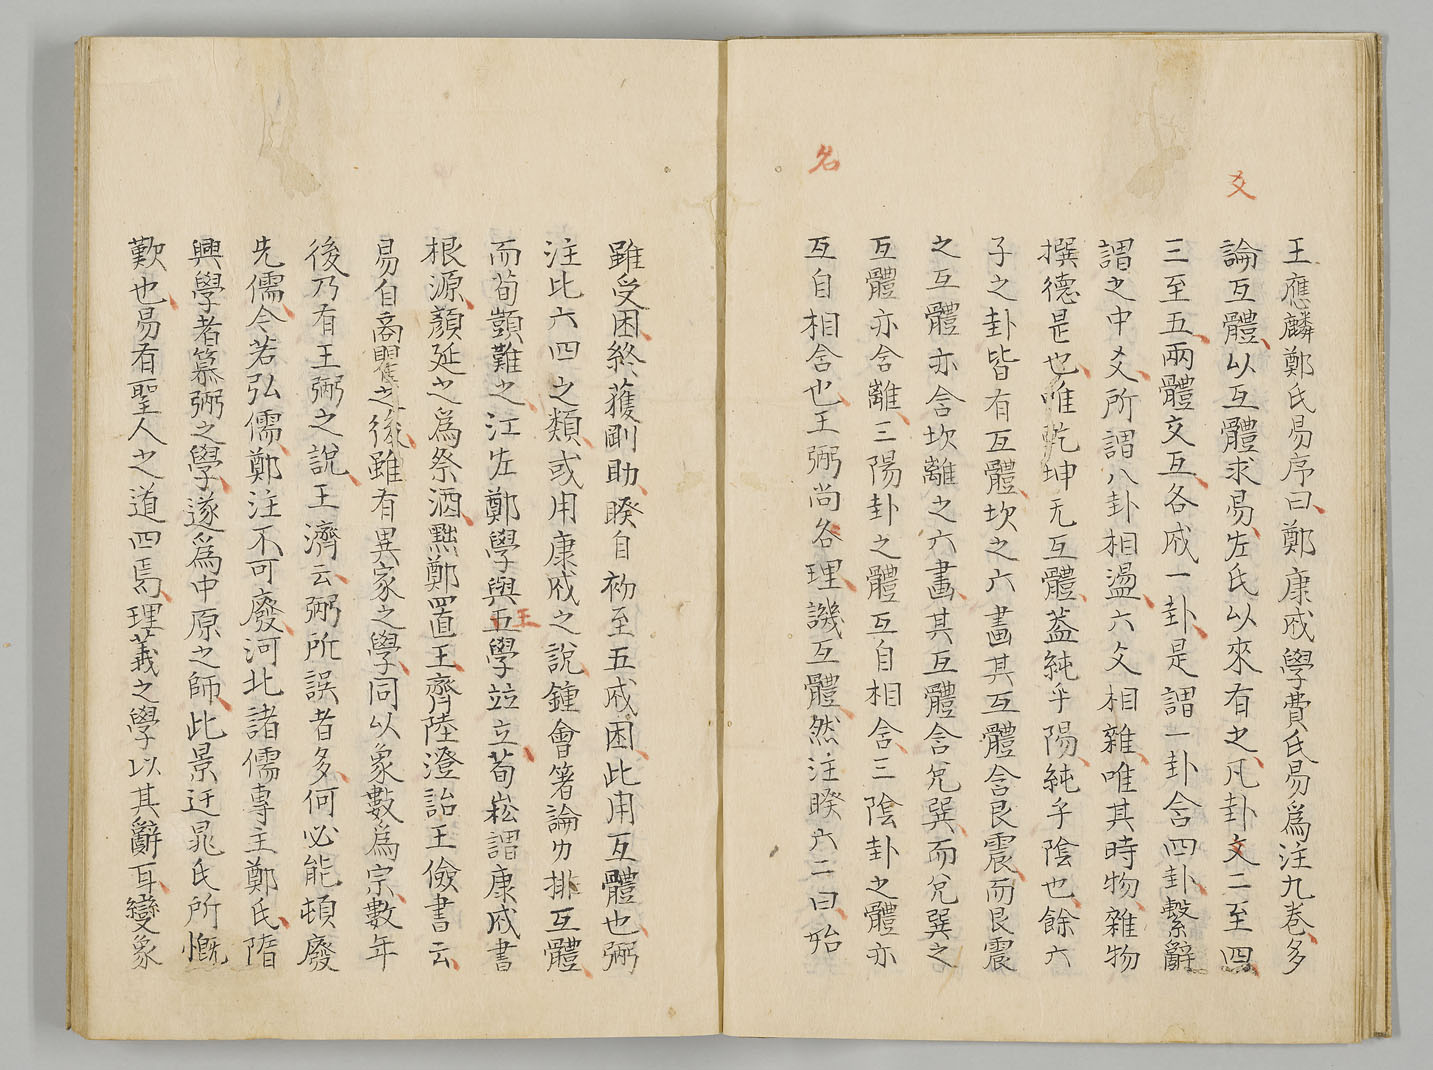 爻
名
王應麟鄭氏易序曰鄭康成學費氏易爲注九卷多
論互體以互體求易左氏以來有之凡卦爻二至四
三至五兩體交互各成一卦是謂一卦含四卦繫辭
謂之中爻所謂八卦相盪六爻相雜唯其時物雜物
撰德是也唯乾坤无互體蓋純乎陽純乎陰也餘六
子之卦皆有互體坎之六畫其互體含艮震而艮震
之互體亦含坎離之六畫其互體含兌巽而兌巽之
互體亦含離三陽卦之體互自相含三陰卦之體亦
互自相含也王弼尚名理譏互體然注睽六二曰始
雖受困終獲剛助睽自初至五成困此用互體也弼
注比六四之類或用康成之說鍾會著論力排互體
而荀顗難之江左鄭學與王學竝立荀崧謂康成書
根源顏延之爲祭酒黜鄭置王齊陸澄詒王儉書云
易自商瞿之後雖有異家之學同以象數爲宗數年
後乃有王弼之說王濟云弼所誤者多何必能頓廢
先儒今若弘儒鄭注不可廢河北諸儒專主鄭氏隋
興學者慕弼之學遂爲中原之師此景迂晁氏所慨
歎也易有聖人之道四焉理義之學以其辭耳變象